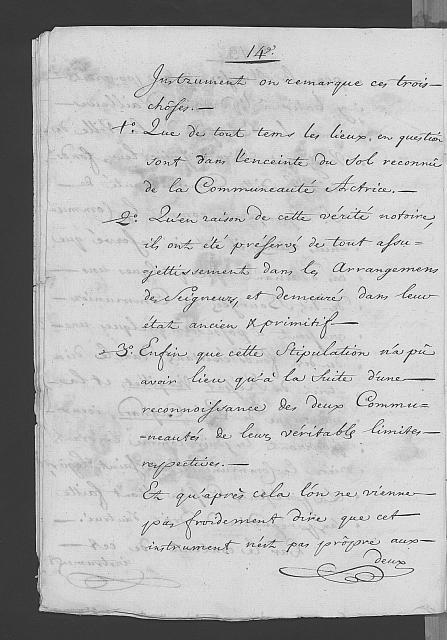 14.
Instrument on remarque ces trois
chôses. —
1.° Que de tout tems les lieux, en question
sont dans l'enceinte du Sol reconnû
de la Communeauté Actrice. —
2.° Qu'en raison de cette vérité notoire,
ils ont été préservés de tout assu-
jettissement dans les Arrangemens
des Seigneurs, et demeuré dans leur
état ancien & primitif —
3.° Enfin que cette Stipulation n'a pû
avoir lieu qu'à la Suite d'une —
reconnoissance des deux Commu-
neautés de leurs véritables limites —
respectives. —
Et qu'après cela l'on ne vienne —
pas froidement dire que cet
instrument n'est pas prôpre aux —
deux